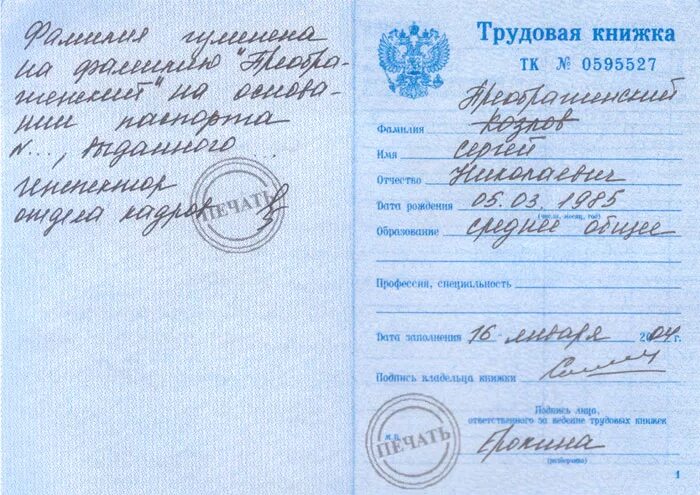 Фамилия изменена
на фамилию "Преобра-
женский" на основа-
нии паспорта
N..., выданного ...
инспектор
отдела кадров
ПЕЧАТЬ
Трудовая книжка
ТК № 0595527
Преображенский
Фамилия Козлов
Имя Сергей
Отчество Николаевич
Дата рождения 05.03.1985
(число, месяц, год)
Образование среднее общее
Профессия, специальность
Дата заполнения 16 января 2004 г.
Подпись владельца книжки
Подпись лица,
ответственного за ведение трудовых книжек
М.П.
ПЕЧАТЬ
Ерохина
(разборчиво)
1